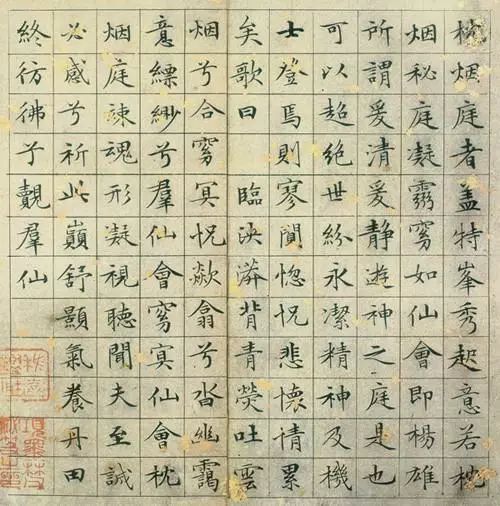 枕烟庭者盖特峯秀起意若枕
烟秘庭凝霛窅如仙會即楊雄
所謂爰清爰静遊神之庭是也
可以超絶世紛永潔精神及機
士登焉則寥閴惚怳悲懷情累
矣歌曰 臨泱漭背青熒吐雲
烟兮合窅冥怳欻翕兮沓幽靄
意縹緲兮羣仙會窅冥仙會枕
烟庭竦魂形凝視聽聞夫至誠
必感兮祈此巔舒顥氣養丹田
終彷彿兮覿羣仙